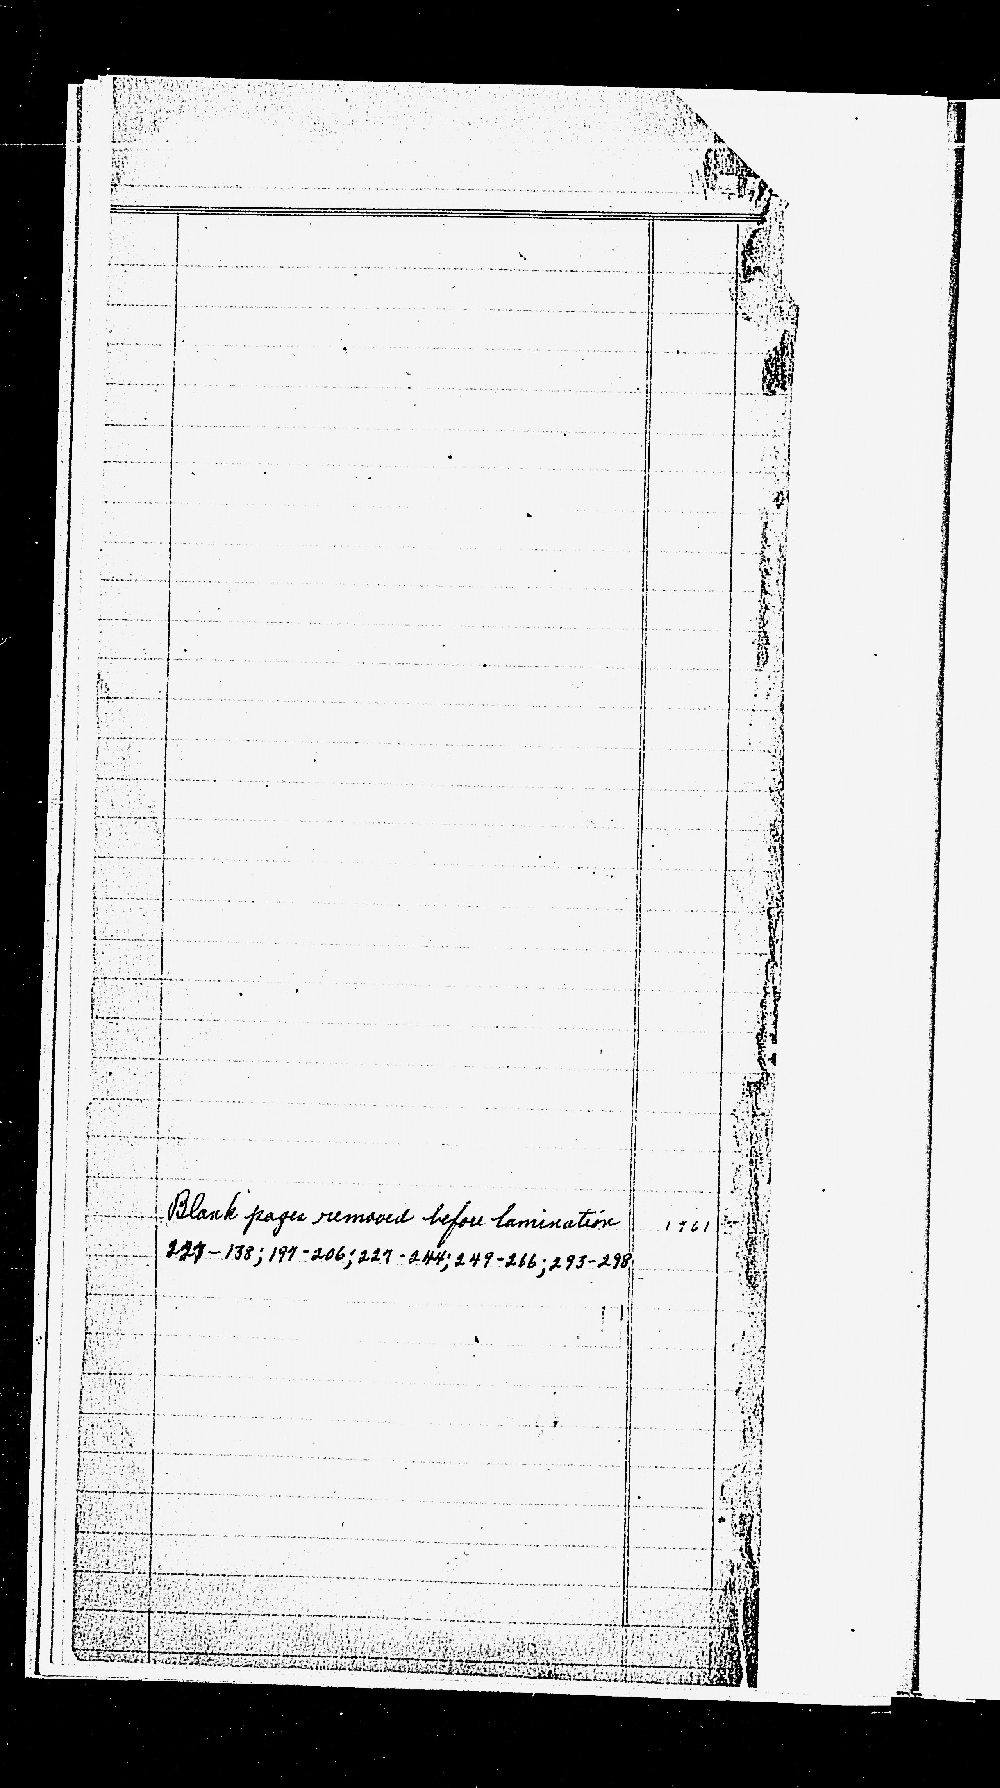 Blank pages removed before lamination 1961
227-138; 197-206; 227-244; 249-266; 293-298